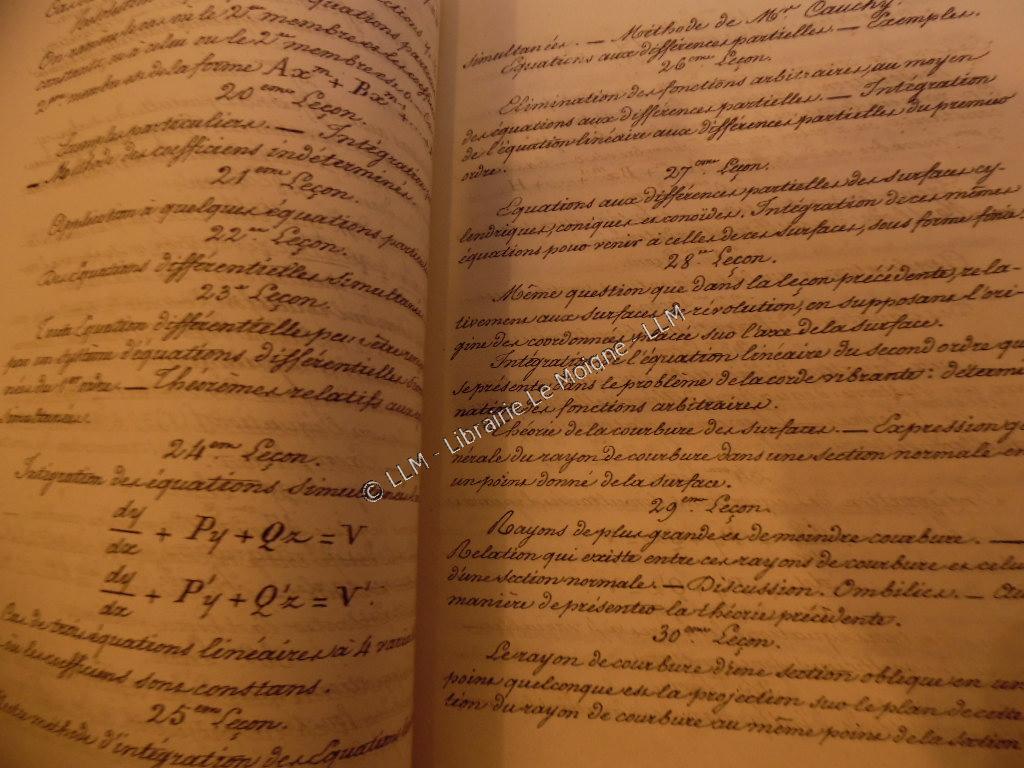 équations
On ramène le cas où le 2me membre est
constante, ou à celui où le 2me membre est
2me membre est de la forme Axm + Bxm-1 + ...
20eme Leçon.
Exemples particuliers. — Intégration
— Méthode des coefficiens indéterminés.
21eme Leçon.
Application à quelques équations
22me Leçon.
Des Équations différentielles Simultanées
23e Leçon.
Toute Équation différentielle peut être
par un système d'équations différentielles
du 1er ordre. — Théorèmes relatifs aux
Simultanées.
24eme Leçon.
Intégration des équations simultanées
dy/dx + Py + Qz = V
dy/dx + P'y + Q'z = V'.
Cas de trois équations linéaires à 4
où les coefficiens sont constans.
25eme Leçon.
méthode d'intégration des Équations
simultanées. — Méthode de Mr. Cauchy.
Equations aux différences partielles. — Exemples.
26eme Leçon.
Elimination des fonctions arbitraires, au moyen
des équations aux différences partielles. — Intégration
de l'équation linéaire aux différences partielles du premier
ordre.
27eme Leçon.
Equations aux différences partielles des surfaces cy-
lindriques, coniques et conoïdes. Intégration de ces mêmes
équations pour venir à celles de ces surfaces, sous forme finie.
28me Leçon.
Même question que dans la leçon précédente, rela-
tivement aux surfaces de révolution, en supposant l'ori-
gine des coordonnées placée sur l'axe de la surface.
Intégration de l'équation linéaire du second ordre qui
se présente dans le problème de la corde vibrante : détermi-
nation des fonctions arbitraires.
Théorie de la courbure des surfaces. — Expression gé-
nérale du rayon de courbure dans une section normale en
un point donné de la surface.
29eme Leçon.
Rayons de plus grande et de moindre courbure. —
Relation qui existe entre ces rayons de courbure et celui
d'une section normale. — Discussion. Ombilics. —
manière de présenter la théorie précédente.
30eme Leçon.
Le rayon de courbure d'une section oblique en un
point quelconque est la projection sur le plan de cette
tion du rayon de courbure au même point de la section
© LLM - Librairie Le Moigne - LLM